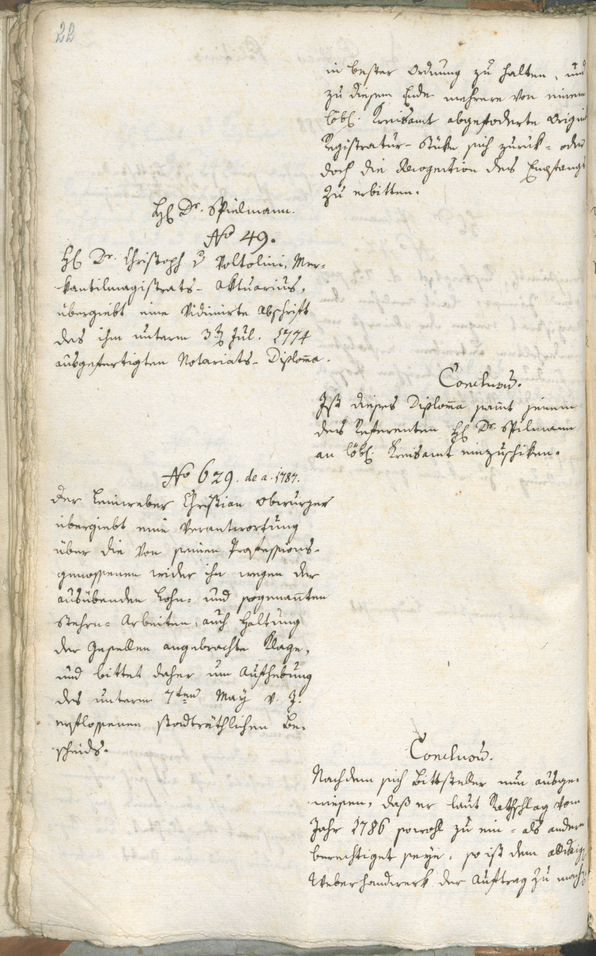 22
in bester Ordnung zu halten, und
zu diesem Ende mehrere von einem
löbl. Kreisamt abgeforderte Origin
Registratur-Stüke sich zurük- oder
doch die Recognition des Empfangs
zu erbitten.
H. Dr. Spielmann.
No 49.
H. Dr. Christoph v Voltolini, Mer-
kantilmagistrats-Aktuarius,
übergiebt eine vidimirte Abschrift
des ihm unterm 3 Jul. 1774
ausgefertigten Notariats-Diploma.
Conclusum.
Ist dieses Diploma samt jenem
des Referenten H. Dr. Spilmann
an löbl. Kreisamt einzuschiken.
No 629. de a. 1787.
Der Leinweber Christian Obwurzer
übergiebt eine Verantwortung
über die von seinen Professions-
genossenen wider ihn wegen der
ausübenden Lohn- und sogenannten
Störn-Arbeiten, auch Haltung
der Gesellen angebrachte Klage,
und bittet daher um Aufhebung
des unterm 7ten May v. J.
erflossenen stadträthlichen Be-
scheids.
Conclusum.
Nachdem sich Bittsteller nun ausge-
wiesen, daß er laut Rathschlag vom
Jahr 1786 sowohl zu ein- als andern
berechtiget seye, so ist dem
Weberhandwerk der Auftrag zu mach